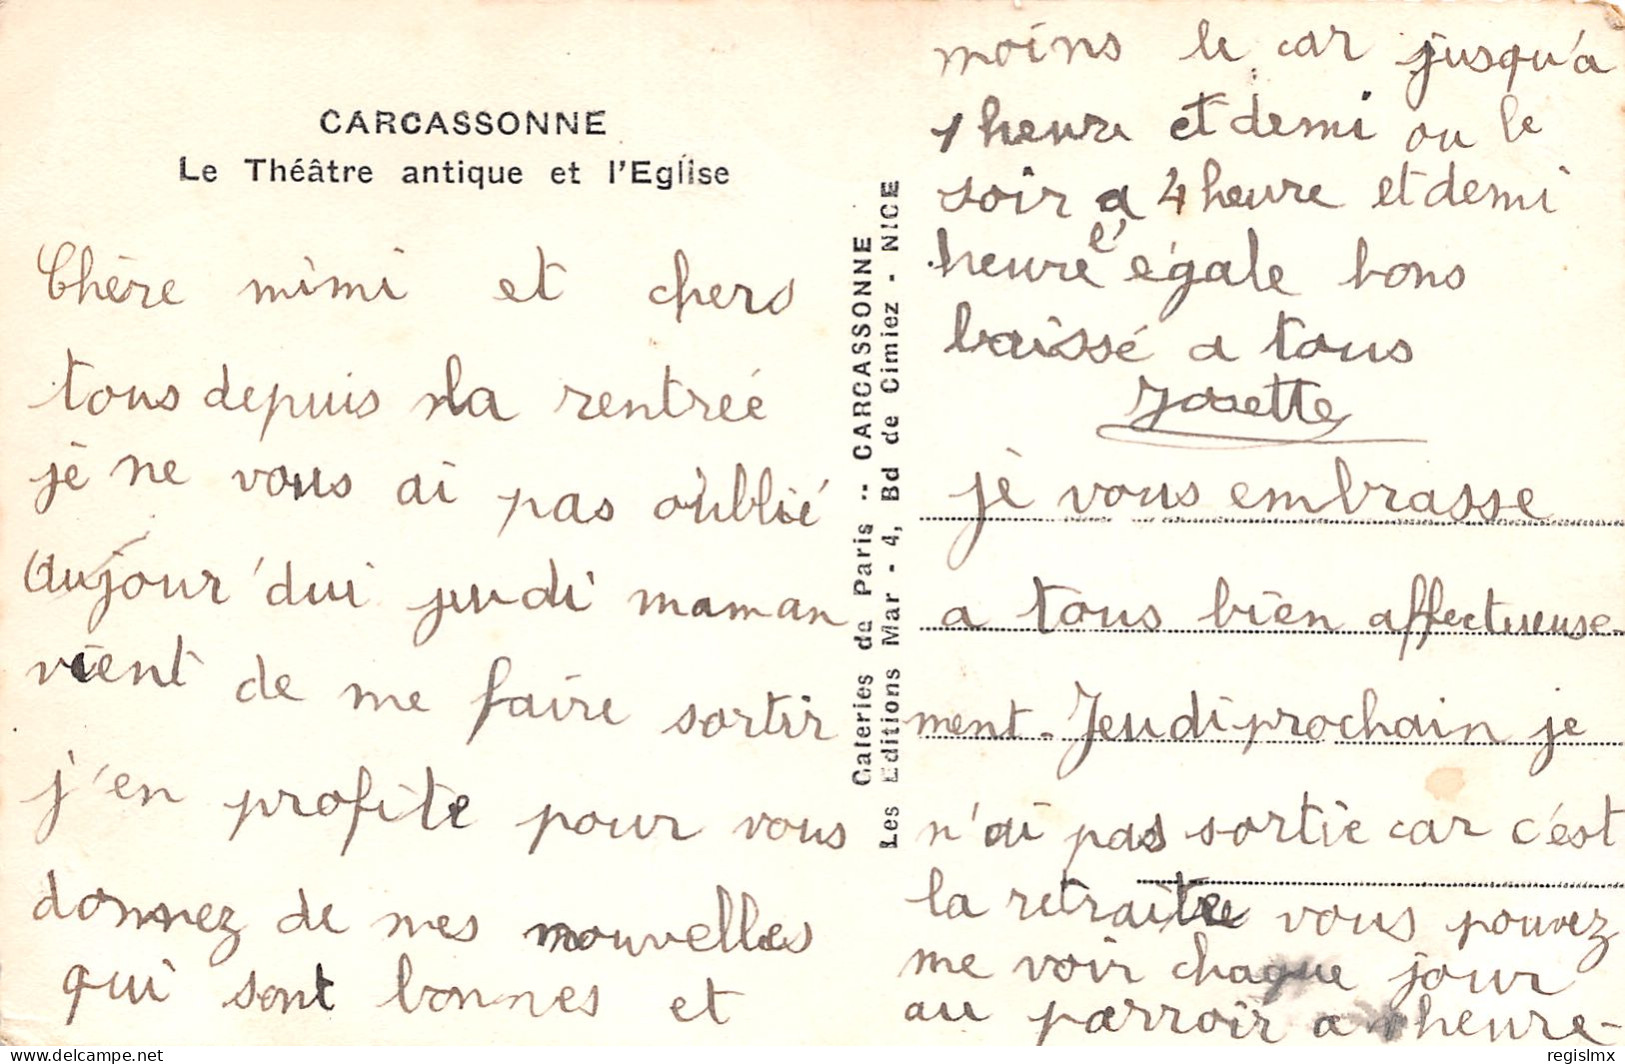 CARCASSONNE
Le Théâtre antique et l'Eglise
Chère mimi et chers
tous depuis la rentrée
je ne vous ai pas oublié
Aujour'dui jeudi maman
vient de me faire sortir
j'en profite pour vous
donnez de mes nouvelles
qui sont bonnes et
Galeries de Paris :: CARCASSONNE
Les Editions Mar - 4, Bd de Cimiez - NICE
je vous embrasse
a tous bien affectueuse-
ment. Jeudi prochain je
n'ai pas sortie car c'est
la retraite vous pouvez
me voir chaque jour
au parroir a heure-
moins le car jusqu'a
1 heure et demi ou le
soir a 4 heure et demi
heure l'égale bons
baissé a tous
Josette
regislmx
delcampe.net